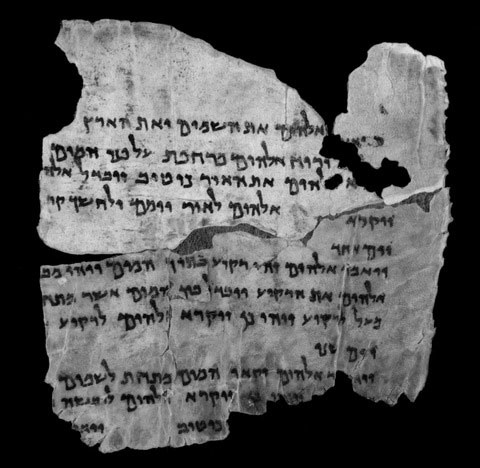 אלהים את השמים ואת הארץ
ורוח אלהים מרחפת על פני המים
אלהים את האור כי טוב ויבדל אלה
ויקרא אלהים לאור יומם ולחשך קר
יום אחד
ויאמר אלהים יהי רקיע בתוך המים ויהי מב
אלהים את הרקיע ויבדל בין המים אשר מתח
מעל לרקיע ויהי כן ויקרא אלהים לרקיע
יום שני
ויאמר אלהים יקאו המים מתחת לשמים
כן ויקרא אלהים ליבשה
כי טוב